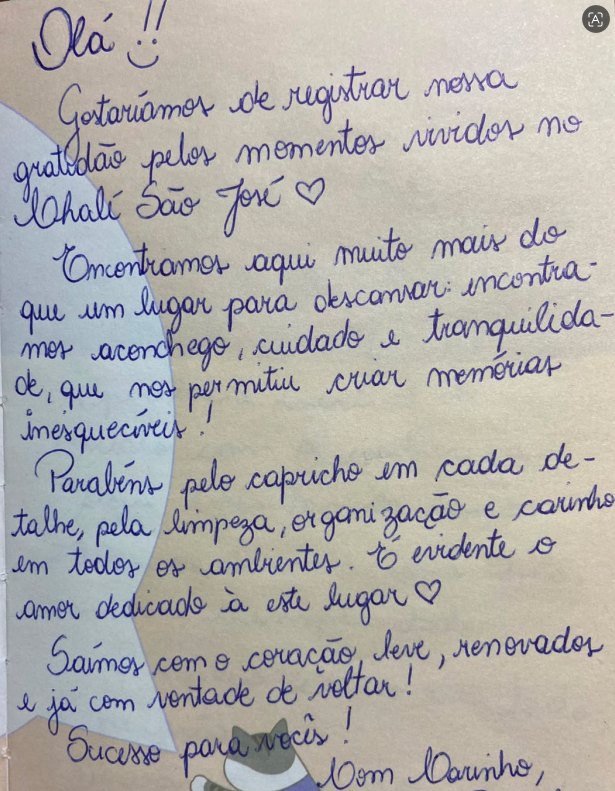 Olá !!
Gostaríamos de registrar nossa
gratidão pelos momentos vividos no
Chalé São José ♡
Encontramos aqui muito mais do
que um lugar para descansar: encontra-
mos aconchego, cuidado e tranquilida-
de, que nos permitiu criar memórias
inesquecíveis!
Parabéns pelo capricho em cada de-
talhe, pela limpeza, organização e carinho
em todos os ambientes. É evidente o
amor dedicado à este lugar ♡
Saímos com o coração leve, renovados
e já com vontade de voltar!
Sucesso para vocês!
Com Carinho,